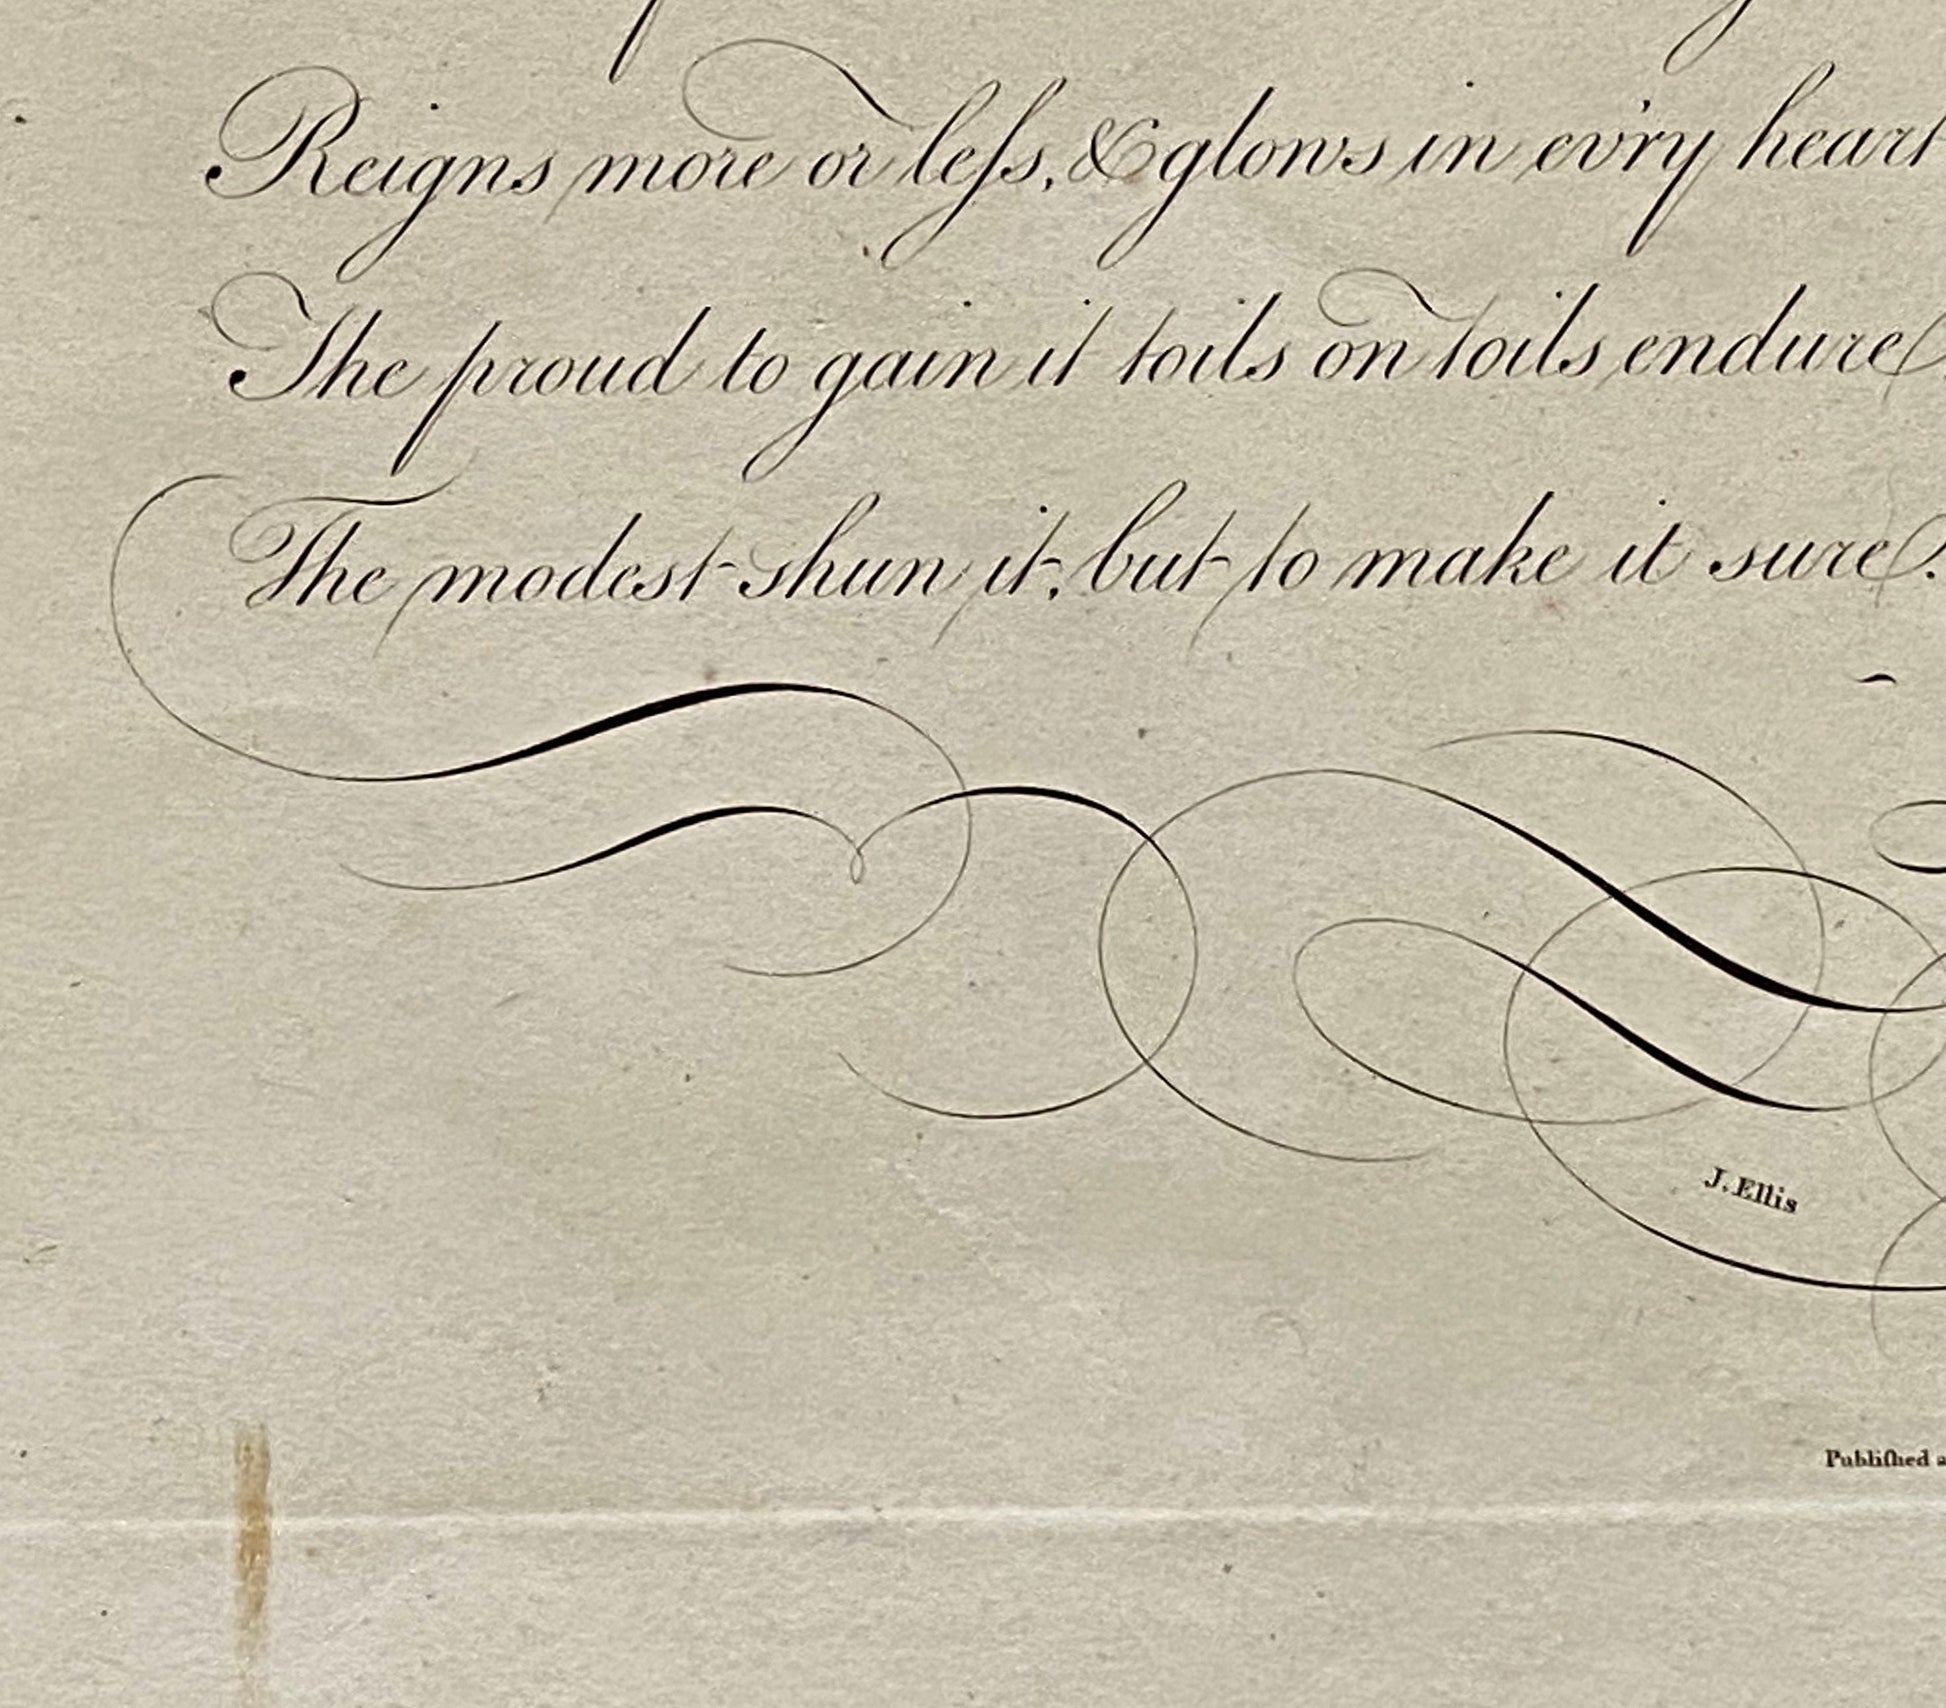 Reigns more or leſs, & glows in ev'ry heart
The proud to gain it toils on toils endure
The modest shun it, but to make it sure.
J. Ellis
Publiſhed